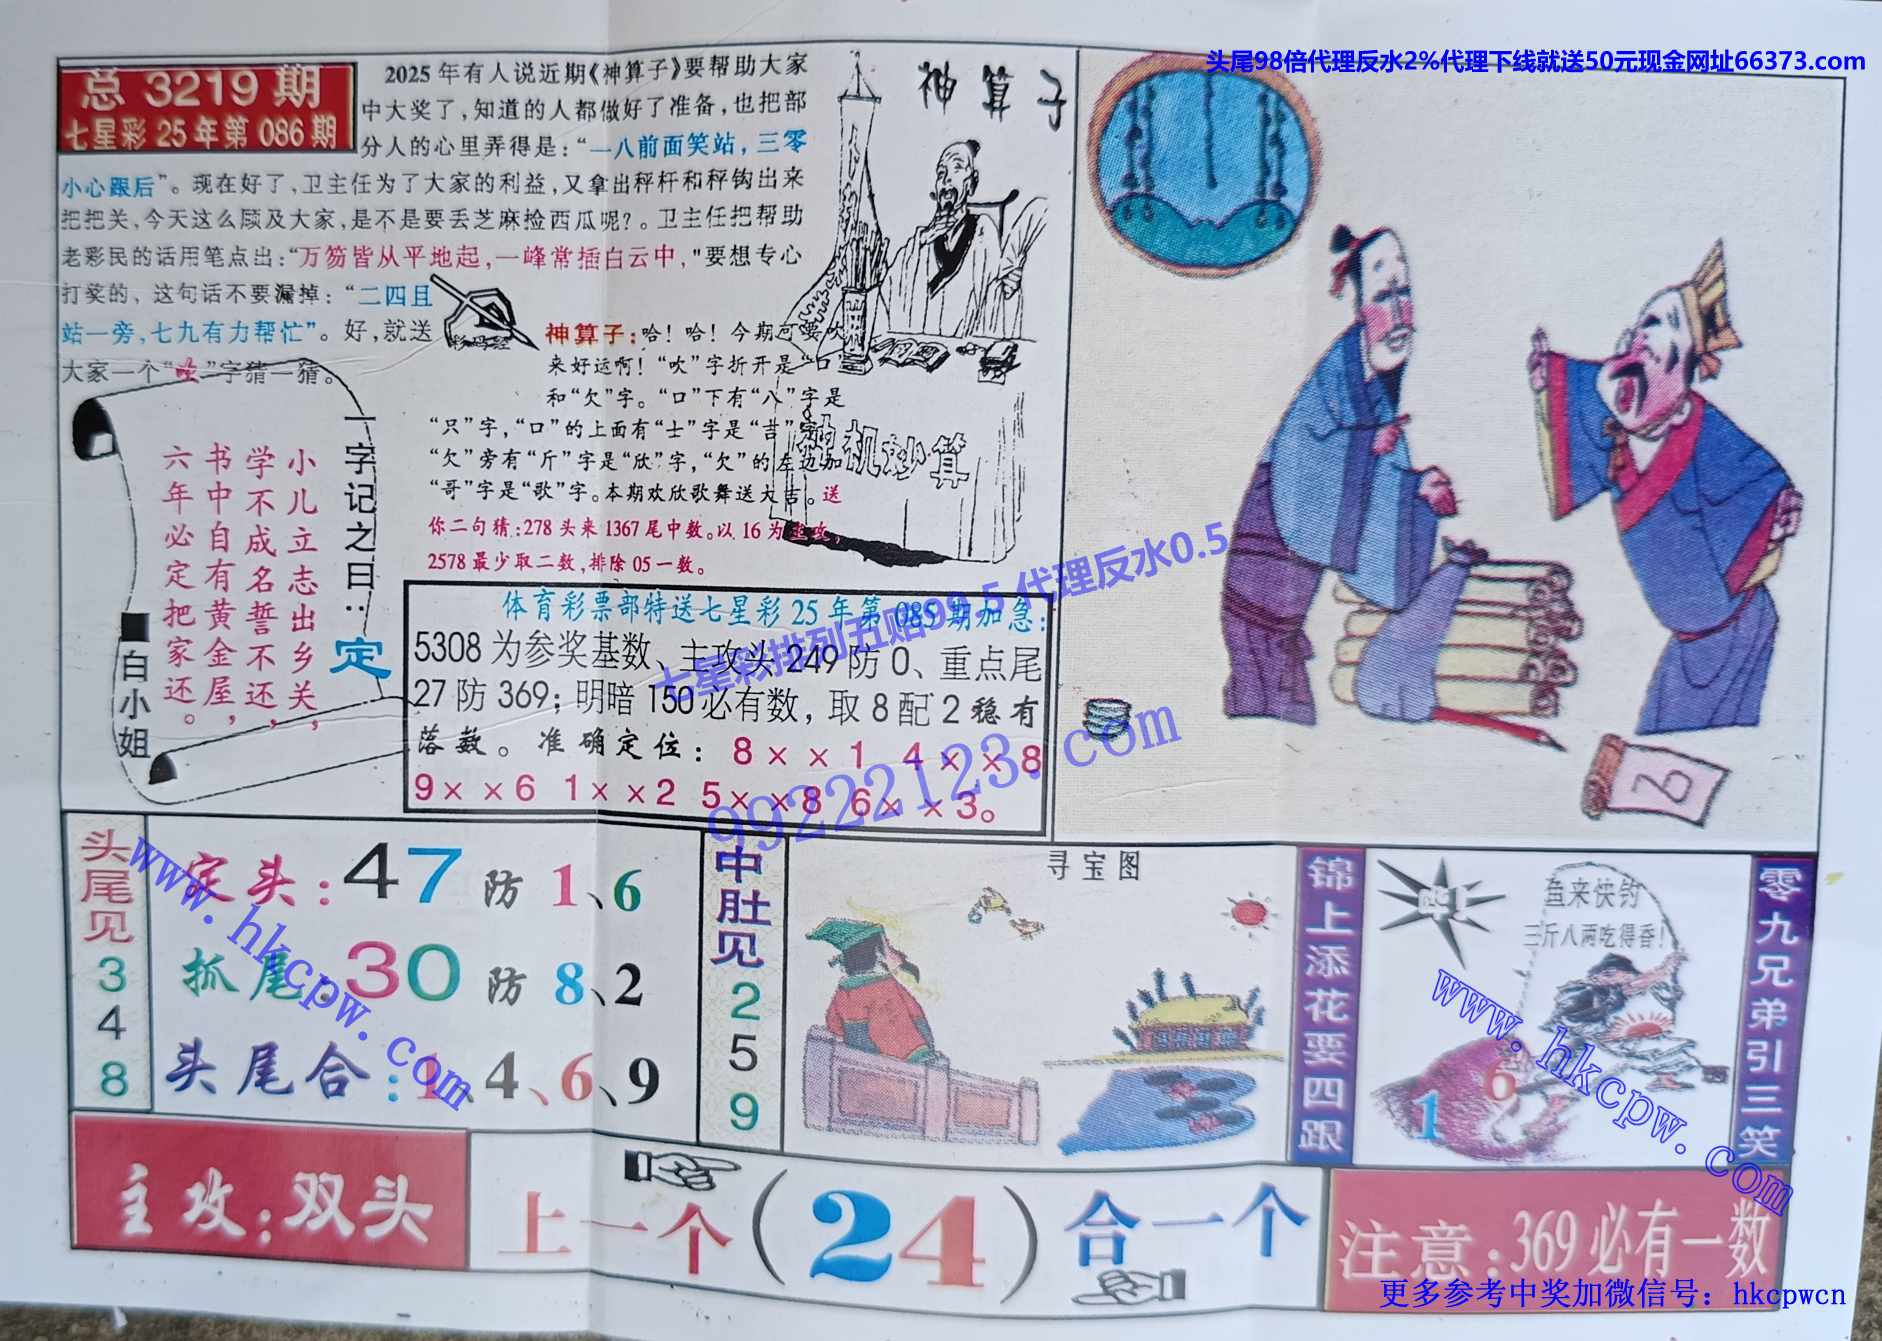 头尾98倍代理反水2%代理下线就送50元现金网址66373.com
总 3219 期
七星彩 25 年第 086 期
2025 年有人说近期《神算子》要帮助大家
中大奖了，知道的人都做好了准备，也把部
分人的心里弄得是：“一八前面笑站，三零
小心跟后”。现在好了，卫主任为了大家的利益，又拿出秤杆和秤钩出来
把把关，今天这么顾及大家，是不是要丢芝麻捡西瓜呢？。卫主任把帮助
老彩民的话用笔点出：“万笏皆从平地起，一峰常插白云中，"要想专心
打奖的，这句话不要漏掉：“二四且
站一旁，七九有力帮忙”。好，就送
大家一个“吹”字猜一猜。
神算子
神算子：哈！哈！今期可要吹
来好运啊！“吹”字折开是“口”
和“欠”字。“口”下有“八”字是
“只”字，“口”的上面有“士”字是“吉”字，
“欠”旁有“斤”字是“欣”字，“欠”的左边加
“哥”字是“歌”字。本期欢欣歌舞送大吉。送
你二句猜：278 头来 1367 尾中数。以 16 为主攻，
2578 最少取二数，排除 05 一数。
神机妙算
一字记之曰：
定
小儿立志出乡关，
学不成名誓不还，
书中自有黄金屋，
六年必定把家还。
白小姐
体育彩票部特送七星彩 25 年第 085 期加急：
5308 为参奖基数、主攻头 249 防 0、重点尾
27 防 369；明暗 150 必有数，取 8 配 2 稳有
落数。准确定位：8××1 4××8
9××6 1××2 5××8 6××3。
七星彩排列五赔99.5 代理反水0.5
99222123.com
头尾见348
定头：47 防 1、6
抓尾：30 防 8、2
头尾合：1、4、6、9
www.hkcpw.com
中肚见259
寻宝图
锦上添花要四跟
鱼来快钓
三斤八两吃得香！
1
6
www.hkcpw.com
零九兄弟引三笑
主攻：双头
上一个（24）合一个
注意：369 必有一数
更多参考中奖加微信号：hkcpwcn